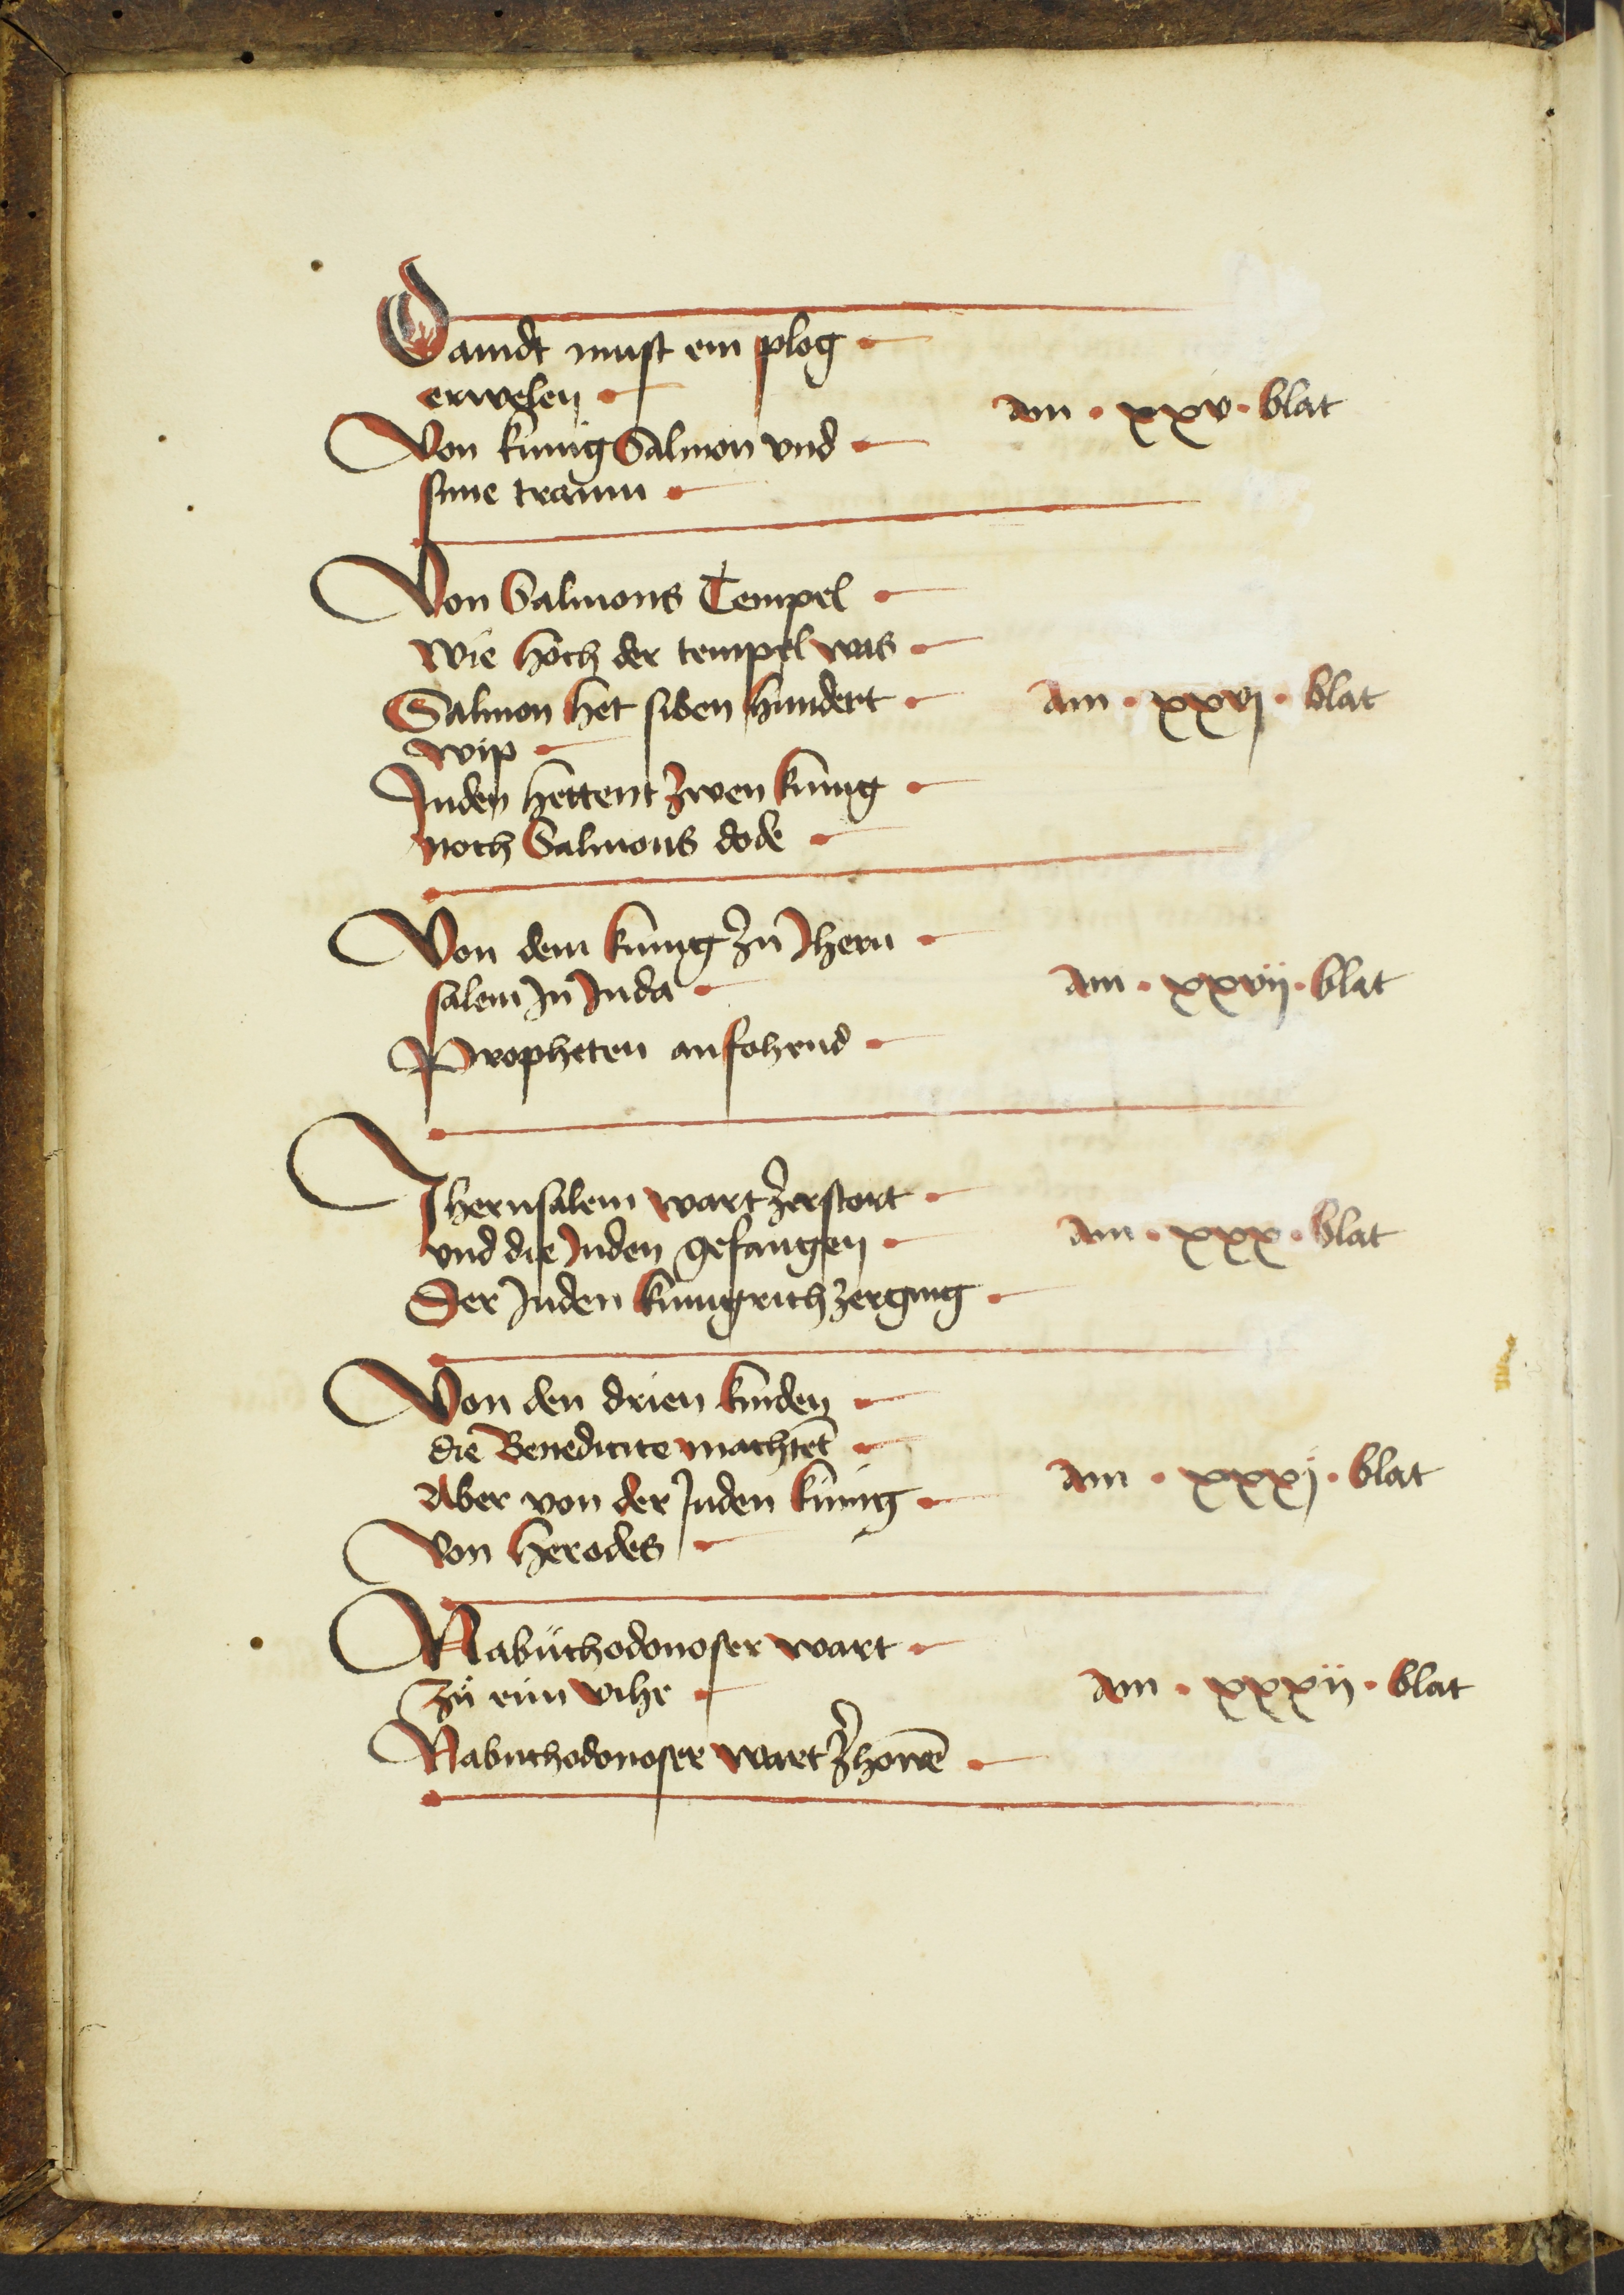 Dauidt must ein plog
erwelen
am · xxv · blat
Von kunig Salmon vnd
sime traum
Von Salmons Tempel
Wie hoch der tempel was
Salmon het siben hundert
am · xxvj · blat
wip
Juden hettent zwen kunig
noch Salmons dode
Von dem kunig zu Jheru
salem Jn Juda
am · xxvij · blat
Propheten anfohend
Jherusalem wart zerstort
vnd die Juden gefangen
am · xxx · blat
Der Juden kunigrich zerging
Von den drien kinden
die Benedicite machtet
Aber von der Juden kunig
am · xxxj · blat
Von herodes
Nabuchodonoser wart
zu eim vihe
am · xxxij · blat
Nabuchodonoser wart zerhowē